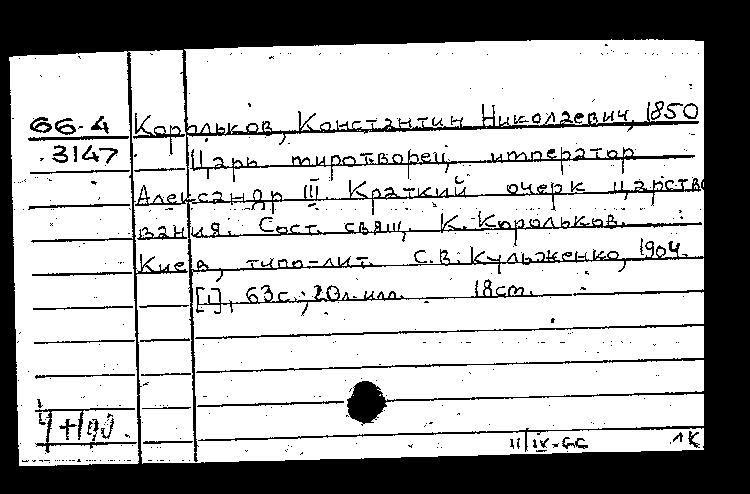 66-4 Корольков, Константин Николаевич, 1850
3147 Царь миротворец император
Александр III Краткий очерк царство
вания. Сост. свящ. К. Корольков.
Киев, типо-лит. С.В. Кульженко, 1904.
[1], 63с.; 20л.илл. 18см.
II/IX-66 1К